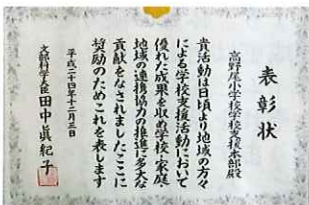 表彰状
高野尾小学校学校支援本部殿
貴活動は日頃より地域の方々
による学校支援活動において
優れた成果を収め学校・家庭・
地域の連携協力の推進に多大な
貢献をなされましたここに
奨励のためこれを表します
平成二十四年十二月三日
文部科学大臣 田中眞紀子